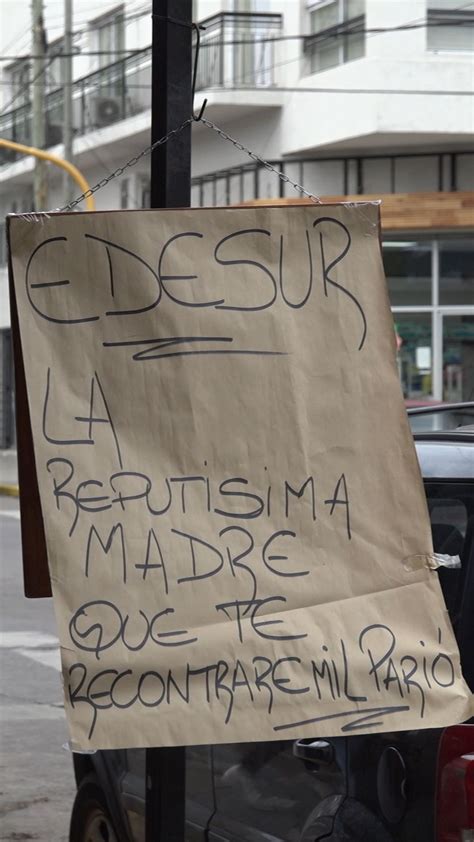 EDESUR
LA
REPUTISIMA
MADRE
QUE TE
RECONTRAREMIL PARIÓ